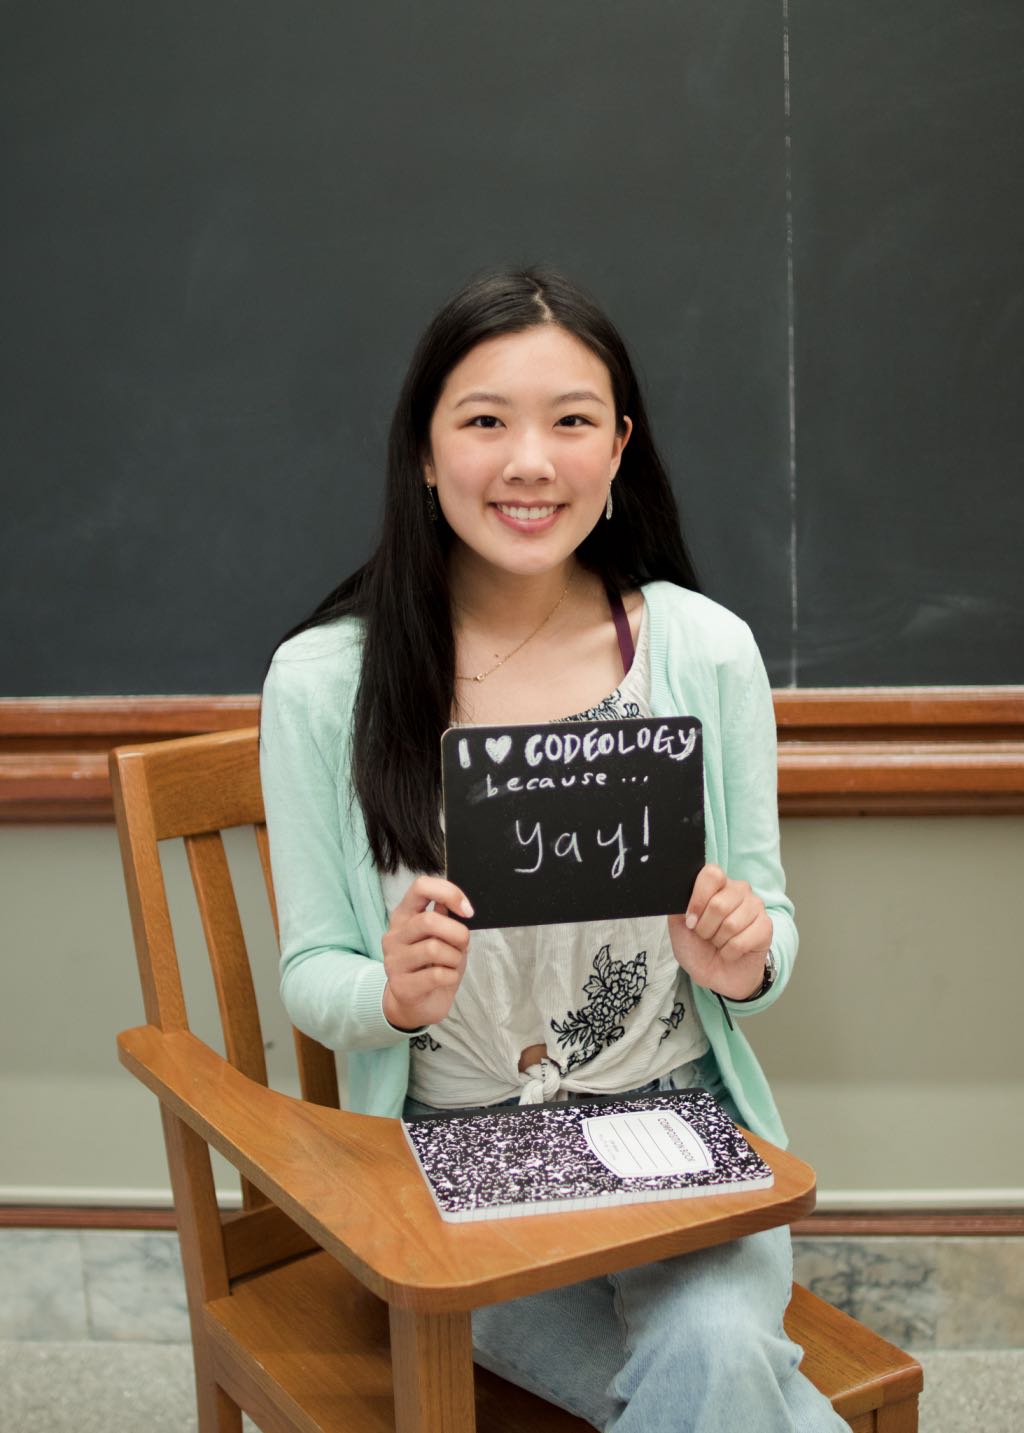 I ♥ CODEOLOGY
because...
yay!
COMPOSITION BOOK